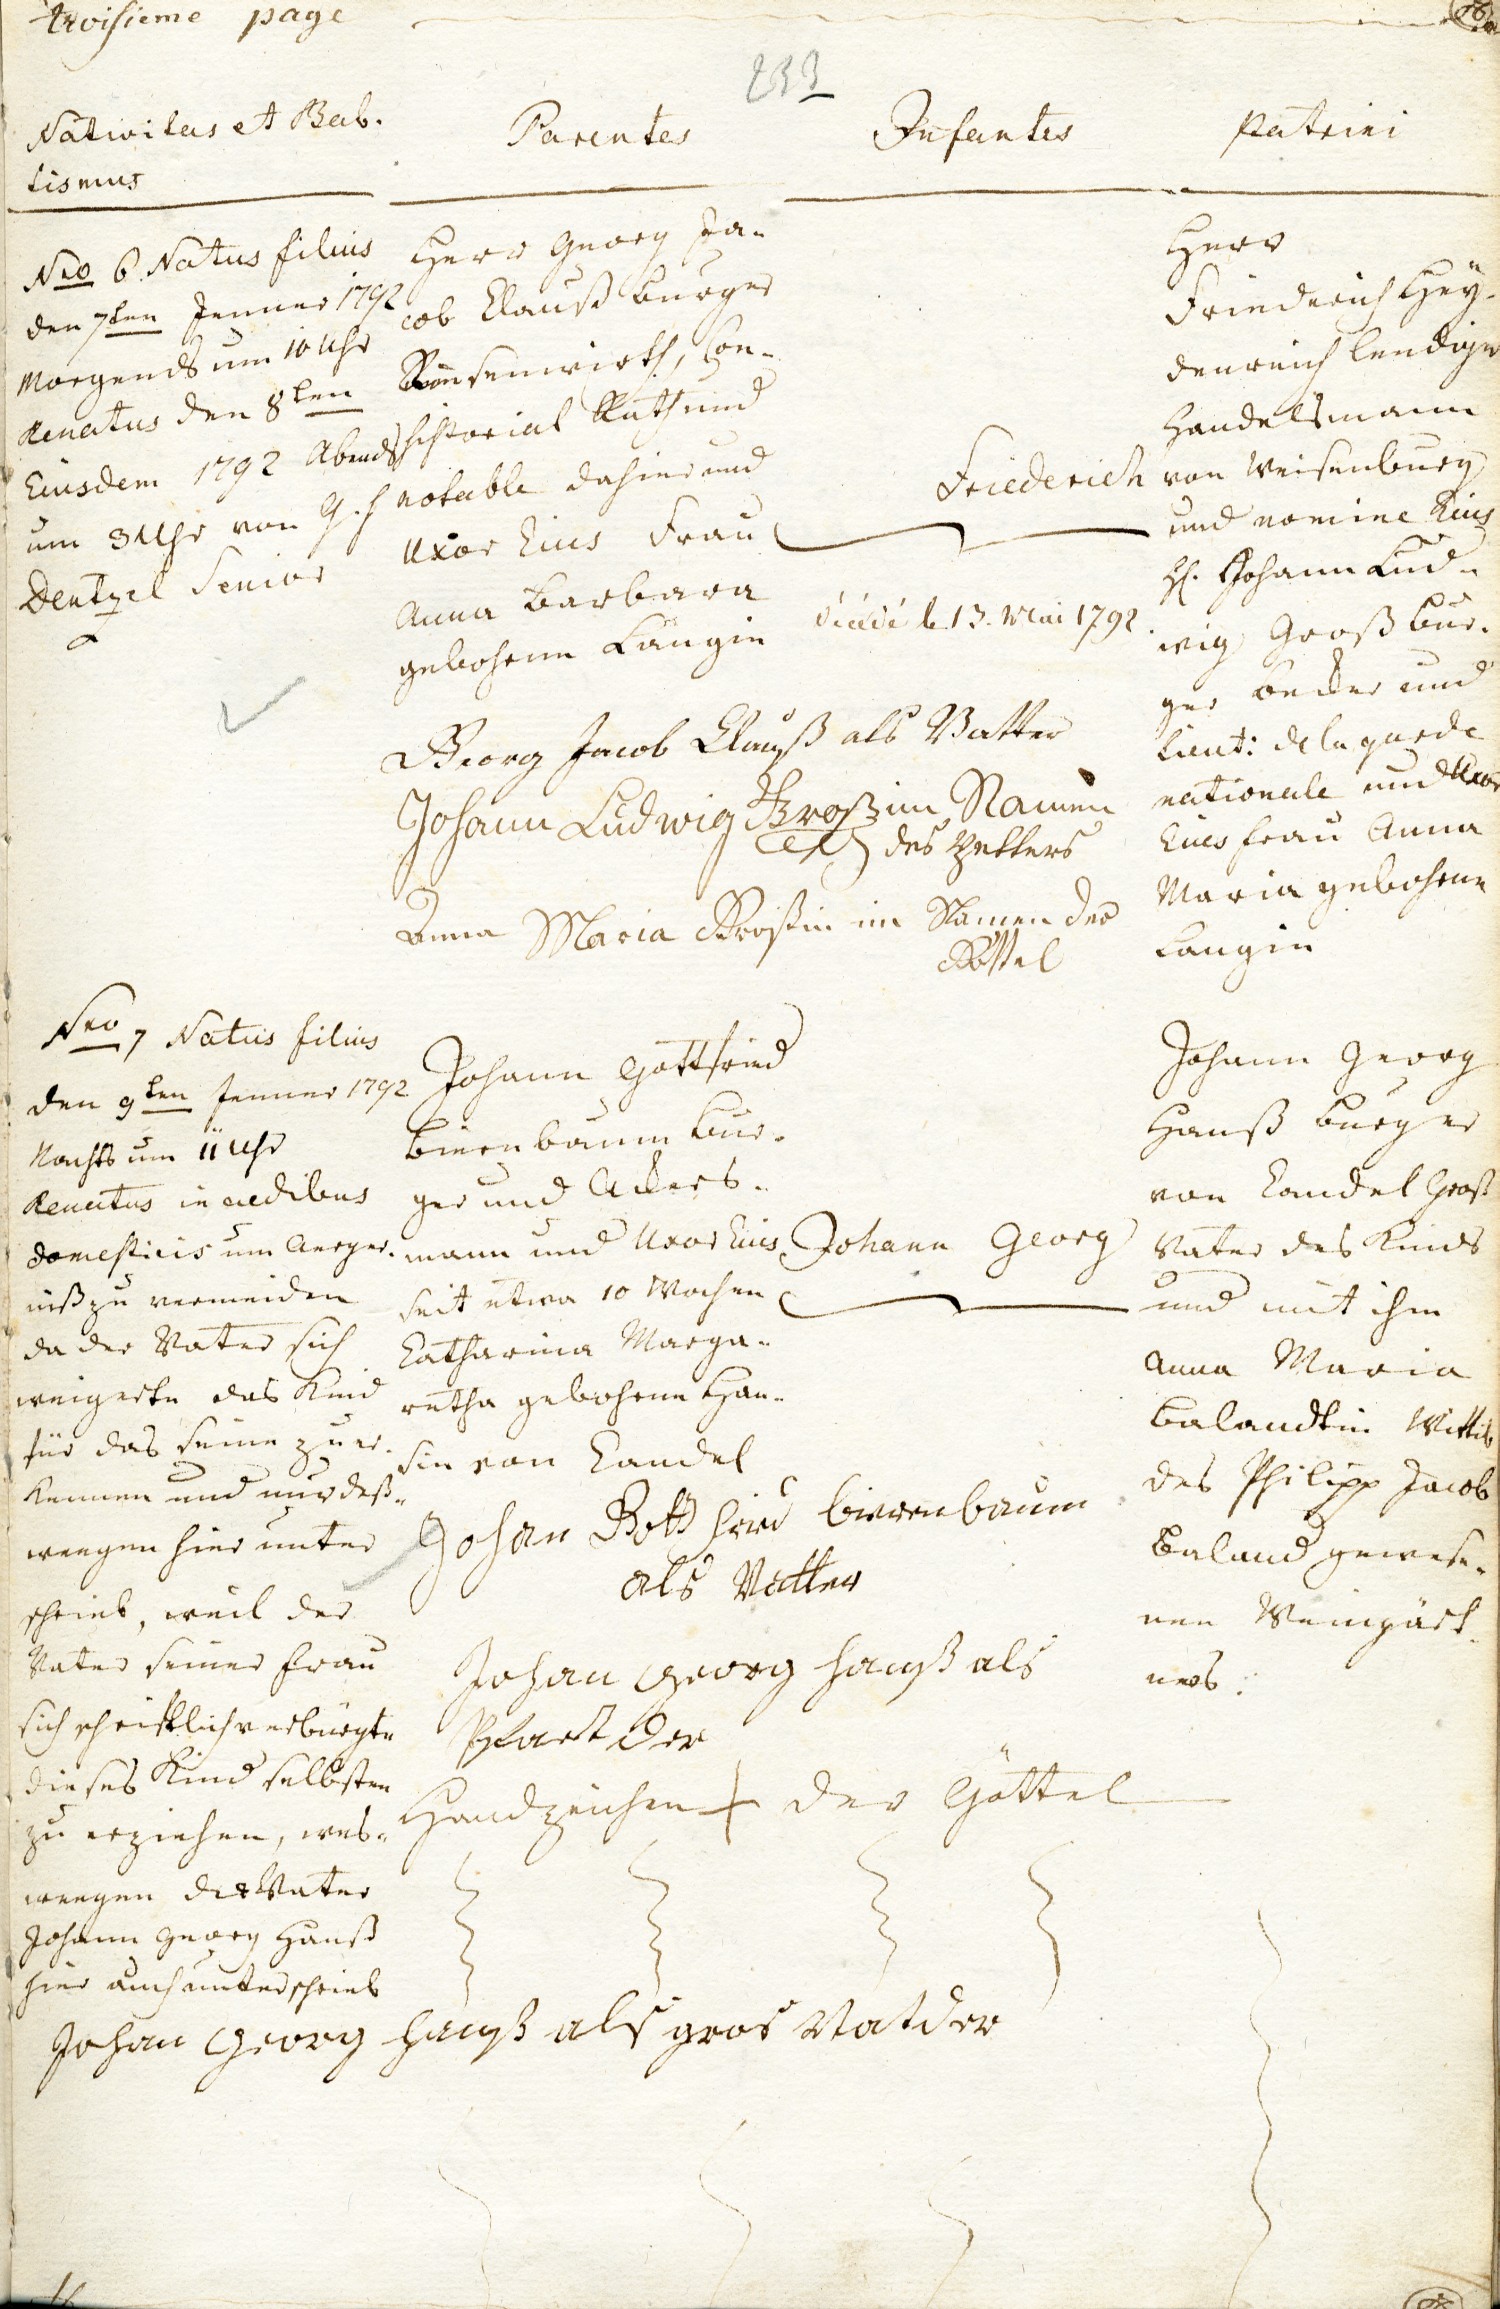 troisieme page
233
Nativitas et Bab-
tismus
Parentes
Infantes
Patrini
Nro 6. Natus filius
den 7ten Jenner 1792
Morgends um 10 Uhr
Renatus den 8ten
Eiusdem 1792 Abends
um 3 Uhr von G. f
Dentzel Senior
Herr Georg Ja-
cob Clauß burger
Kronsenwirth, Con-
sistorial Rath und
notable dahier und
Uxor Eius Frau
Anna Barbara
gebohrene Langin
Friederich
décédé le 13. Mai 1792
Herr
Friederich Hey-
denreich lendiger
Handelsmann
von Weisenburg
und nomine Eius
H. Johann Lud-
wig Groß bur-
ger becker und
Lieut: de la garde
nationale und Uxor
Eius frau Anna
Maria gebohrene
Langin
Georg Jacob Clauß als Vatter
Johann Ludwig Groß im Namen
des Petters
Anna Maria Großin im Namen der
Göttel
Nro 7 Natus filius
den 9ten Jenner 1792
Nachts um 11 Uhr
Renatus in aedibus
domesticis um Aerger-
niß zu vermeiden
da der Vater sich
weigerte das Kind
für das seine zu er-
kennen und nur deß-
weegen hier unter
schrieb, weil der
Vater seiner frau
sich schriftlich verbürgte
dieses Kind selbsten
zu erziehen, wes-
weegen der Vater
Johann Georg Hanß
hier auch unterschrieb
Johann Gottfried
bierenbaum bur-
ger und Ackers-
mann und Uxor Eius
seit etwa 10 Wochen
Catharina Marga-
retha gebohrene Han-
sin von Candel
Johann Georg
Johann Georg
Hanß burger
von Candel Groß
Vater des Kinds
und mit ihm
Anna Maria
Balandtin Wittib
des Philipp Jacob
Baland gewese-
nen Weingärt-
ners.
Johan Gottfried bierenbaum
als Vatter
Johan Georg Hanß als
Pfaetder
Handzeichen + der Göttel
Johan Georg Hanß als gros Vatder